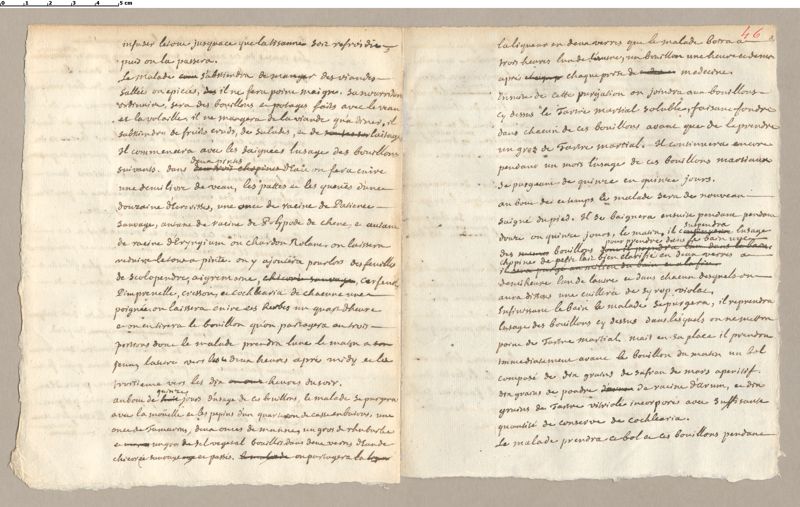 infuser le tout jusquace que la tisanne soit refroidie
puis on la passera.
Le malade s'abstiendra de manger des viandes
sallée ou epicées, il ne fera point maigre. Sa nourriture
ordinaire, sera des bouillons et potages faits avec le veau
et la volaille, il ne mangera de la viande qu'a diner, il
s'abstiendra de fruits cruds, de salades, et de laitage
Il commencera avec les saignées lusage des bouillons
suivants. dans deux pintes d'Eau on fera cuire
une demi livre de veau, les pattes et les queües d'une
douzaine d'Ecrevisses, une once de racine de Patience
sauvage, autant de racine de Polypode de chene, et autant
de racine d'Eryngium ou chardon Roland. on laissera
reduire le tout a pinte. on y ajoutera pour lors des feuilles
de scolopendre, aigremoine, chicorée sauvage, cerfeuil,
Pimprenelle, cresson, et cochlearia de chacune une
poignée, on laissera cuire les herbes un quart dheure
et on en tirera le bouillon qu'on partagera en trois
portions dont le malade prendra lune le matin a
jeun, lautre vers les 4 deux heures après midy et la
troisieme vers les dix heures du soir.
au bout de quinze jours dusage de ces bouillons, le malade se purgera
avec la moëlle et les pepins d'un quarteron de casse en batons, une
once de Tamarins, deux onces de manne, un gros de rhubarbe
et un gros de sel vegetal bouillis dans deux verres d'Eau de
chicorée sauvage et passés. le malade on partagera la
46
la liqueur en deux verres que le malade boira a
trois heures lun de lautre, un bouillon une heure et demie
après chaque prise de medecine.
Ensuite de cette purgation on joindra aux bouillons
cy dessus le Tartre martial soluble, faisant fondre
dans chacun de ces bouillons avant que de le prendre
un gros de Tartre martial. Il continuera encore
pendant un mois lusage de ces bouillons martiaux
se purgeant de quinze en quinze jours.
au bout de ce temps le malade sera de nouveau
saigné du pied. Il se baignera ensuite pendant
douze ou quinze jours, le matin, il suspendra lusage
des bouillons pour prendre dans le bain une
choppine de petit lait bien clarifié en deux verres a
demi heure lun de lautre et dans chacun desquels on
aura dissous une cuillerée de syrop violat.
Enfin avant le bain le malade se purgera, il reprendra
lusage des bouillons cy dessus dans lesquels on ne mettra
point de Tartre martial mais en sa place il prendra
immediatement avant le bouillon du matin un bol
composé de dix grains de safran de mars aperitif.
dix grains de poudre de racine d'arum, et dix
grains de Tartre vitriolé incorporés avec suffisante
quantité de conserve de cochlearia.
Le malade prendra ce bol et ces bouillons pendant